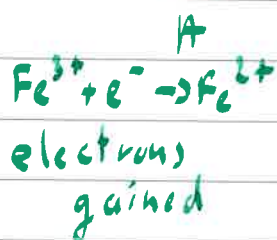 A
Fe³⁺ + e⁻ → Fe²⁺
electrons
gained